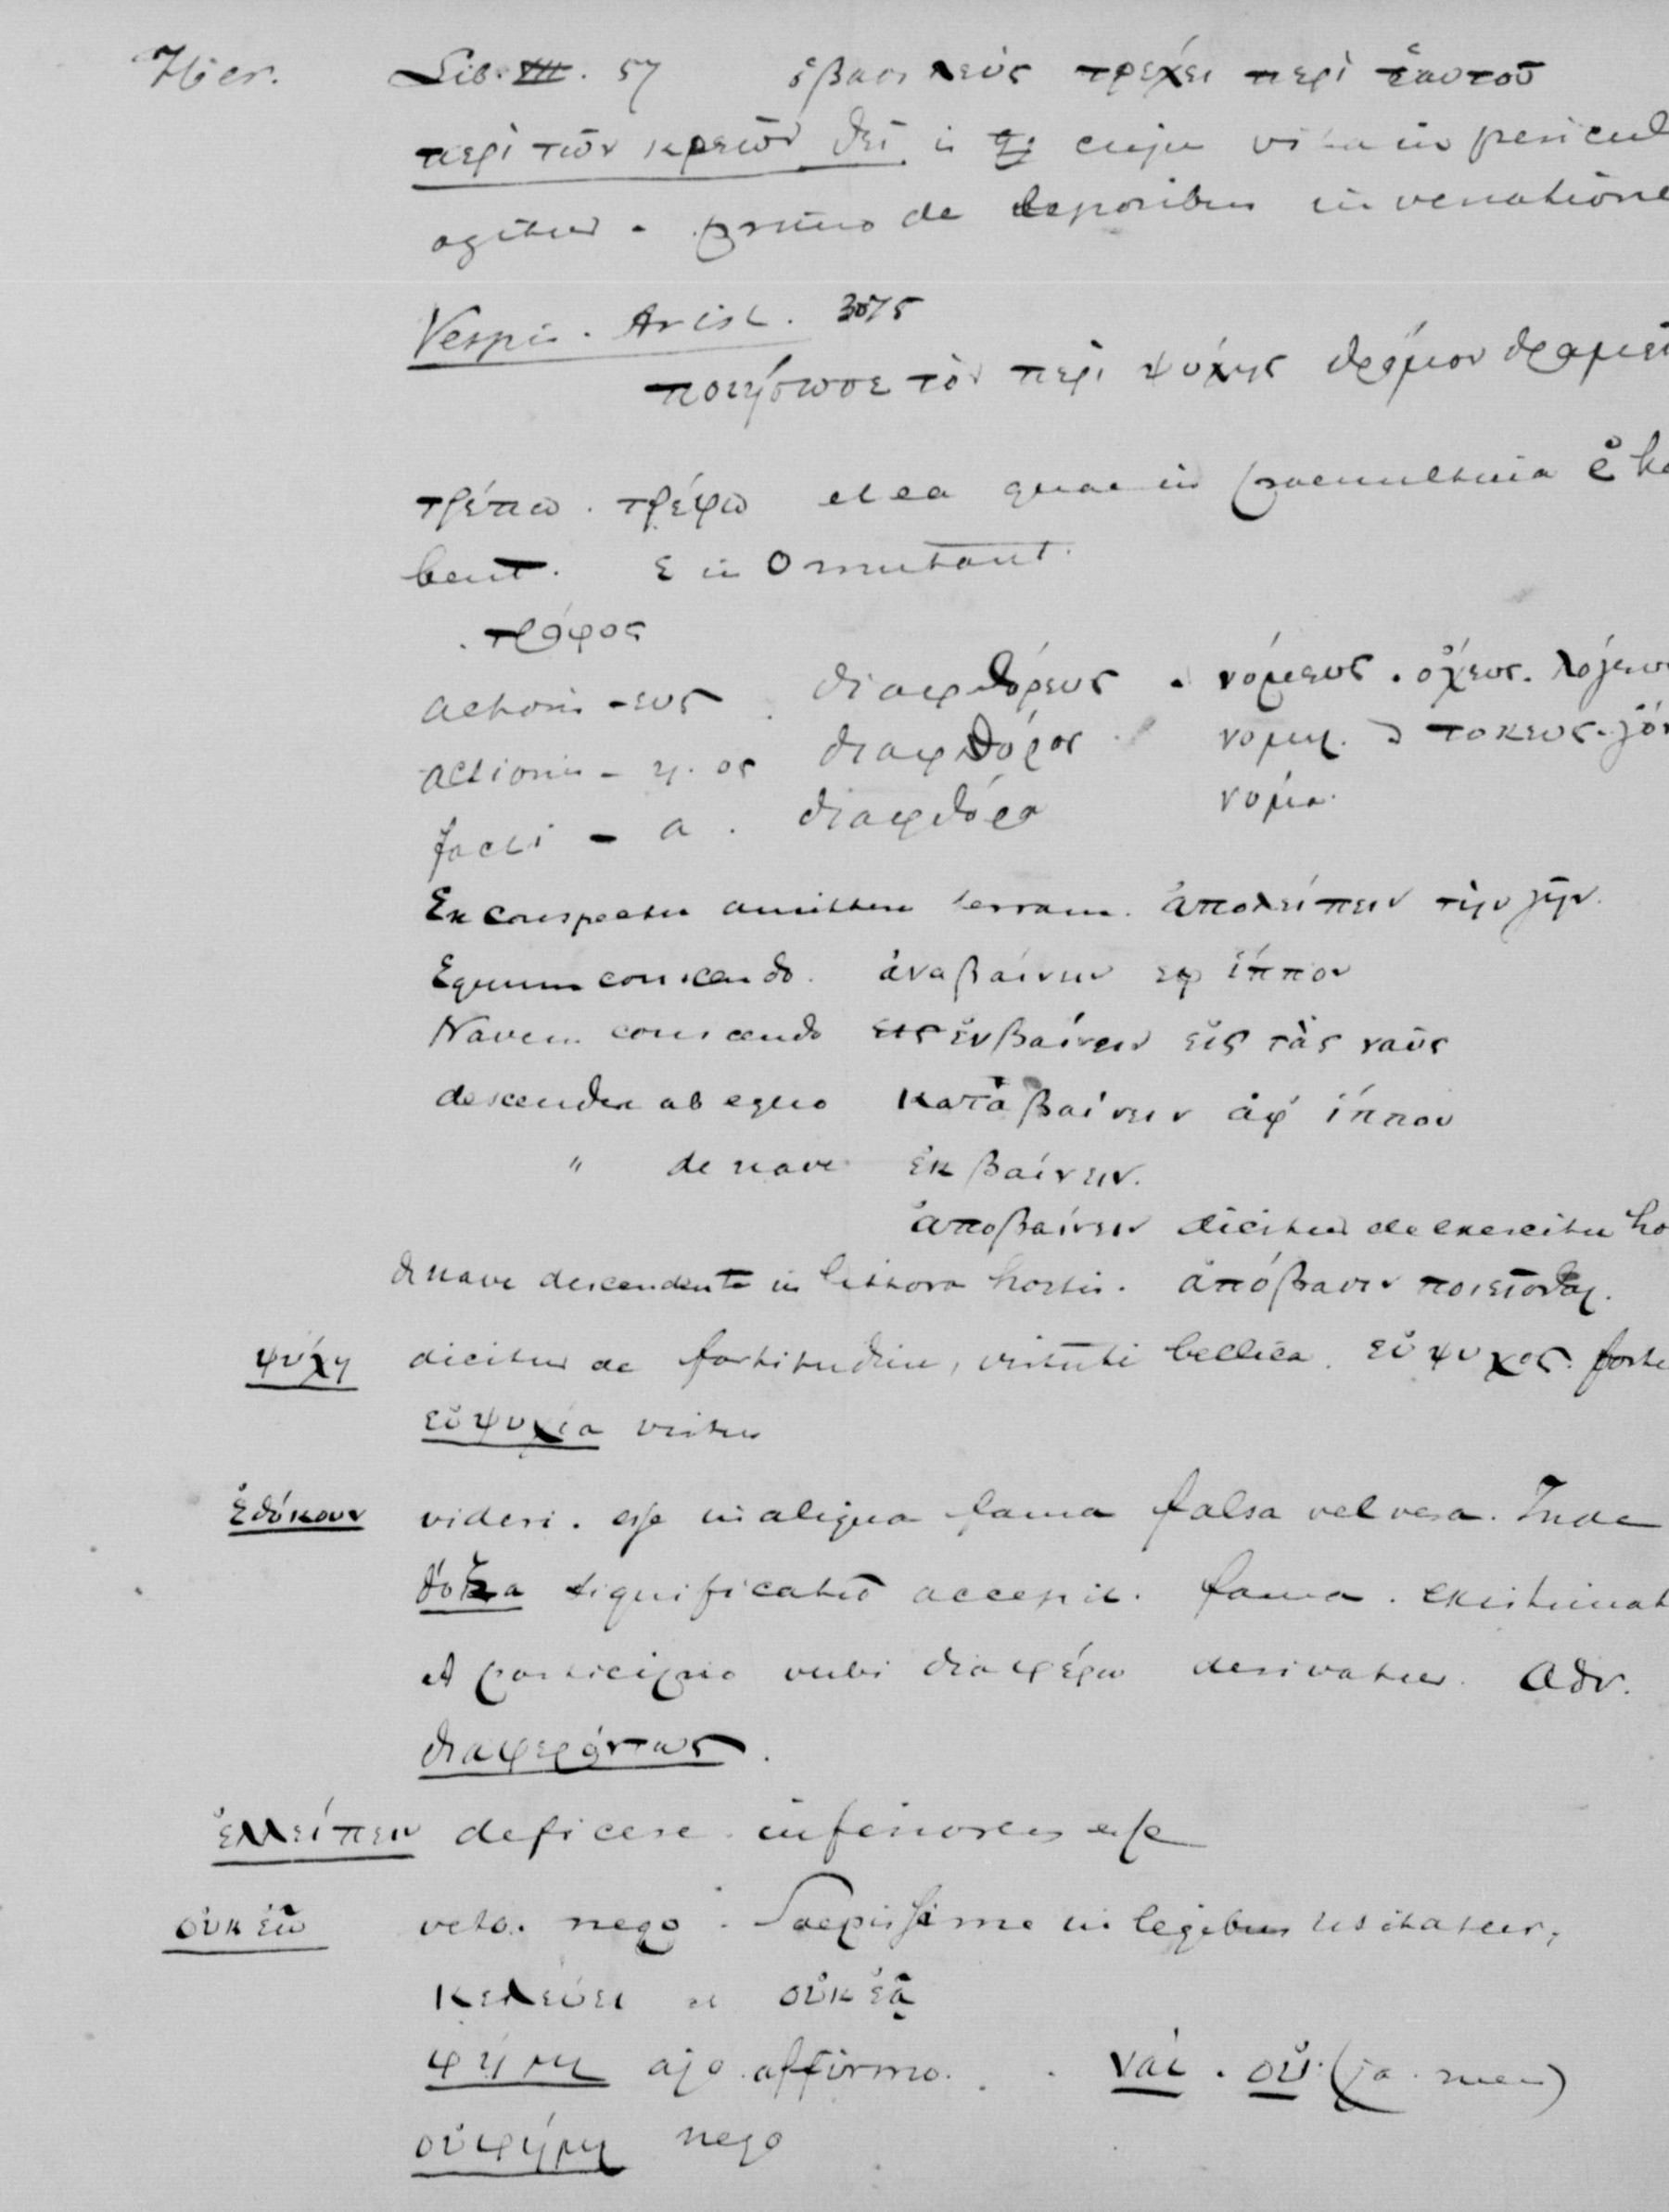 Hier. Lib. VII. 57 ὁ βασιλεὺς τρέχει περὶ ἑαυτοῦ
περὶ τῶν κρεῶν θεῖ is cuju vita in pericul
agitur. primo de leporibus in venatione
Vespis. Arist. 375
ποιήσωσε τὸν περὶ ψύχης δρόμον δραμεῖ
τρέπω. τρέφω et ea quae in paenultima ε ha
bent. ε in ο mutant.
τρόφος
actoris -ευς. διαφθόρευς. νόμευς. ὄχευς. λόγευς
actionis - η. ος διαφθόρος νομη. τοκευς. γόν
facti - α. διαφθόρα νομα.
Ex conspectu amittere terram. ἀπολείπειν τὴν γῆν.
Equum conscendo. ἀναβαίνειν εφ ἵππον
Navem conscendo εις ἐνβαίνειν εἰς τὰς ναῦς
descendere ab equo καταβαίνειν ἀφ ἵππου
" de nave ἐκβαίνειν.
ἀποβαίνειν dicitur de exercitu ho
de nave descendente in littora hostis. ἀπόβασιν ποιεῖσθαι.
ψύχη dicitur de fortitudine, virtute bellica. εὐψυχος. forte
εὐψυχία virtus
ἐδόκουν videri. esse in aliqua fama falsa vel vera. Inde
δόξα significatio accepit. fama. existimat
A participio verbi διαφέρω derivatur. Adv.
διαφερόντως.
ἐλλείπειν deficere. inferiorem esse
οὐκ ἐῶ veto. nego. Saepissime in legibus usitatur,
κελεύει οὐκ ἐᾷ
φήμι ajo. affirmo. ναί. οὔ. (ja. neen)
οὐ φήμι nego